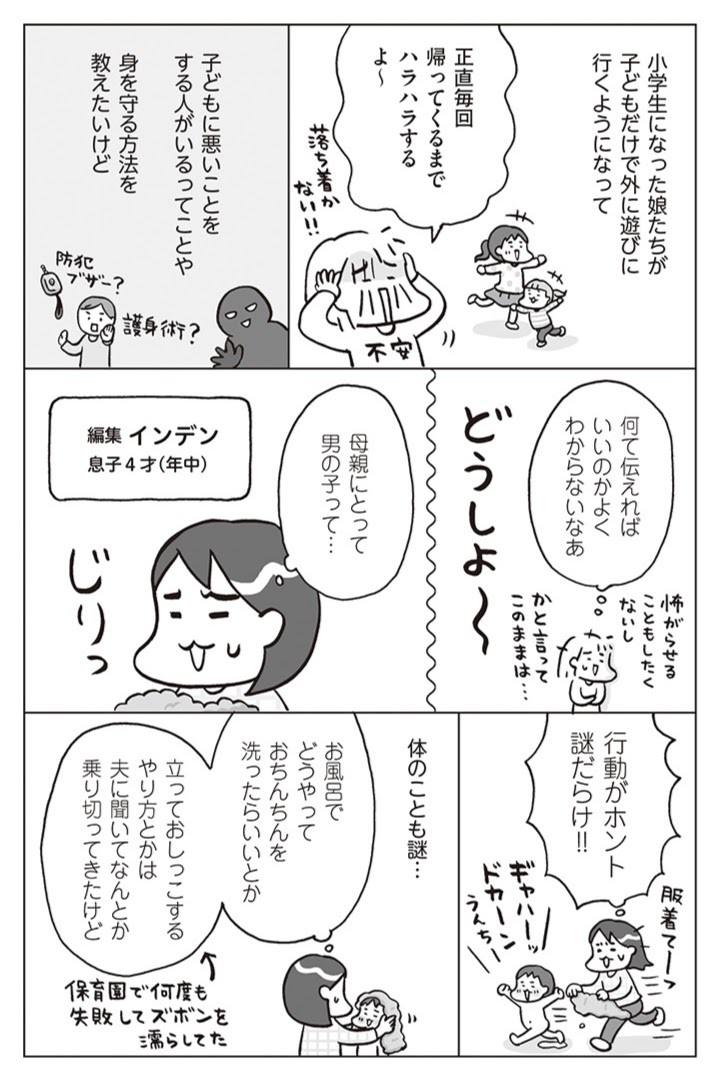 小学生になった娘たちが
子どもだけで外に遊びに
行くようになって
正直毎回
帰ってくるまで
ハラハラする
よ〜
落ち着か
ない!!
不安
子どもに悪いことを
する人がいるってことや
身を守る方法を
教えたいけど
防犯
ブザー?
護身術?
何て伝えれば
いいのかよく
わからないなあ
どうしよ〜
怖がらせる
こともしたく
ないし
かと言って
このままは…
母親にとって
男の子って…
編集 インデン
息子4才(年中)
じりっ
行動がホント
謎だらけ!!
服着てーっ
ギャハーッ
ドカーン
うんちー
体のことも謎…
お風呂で
どうやって
おちんちんを
洗ったらいいとか
立っておしっこする
やり方とかは
夫に聞いてなんとか
乗り切ってきたけど
保育園で何度も
失敗してズボンを
濡らしてた